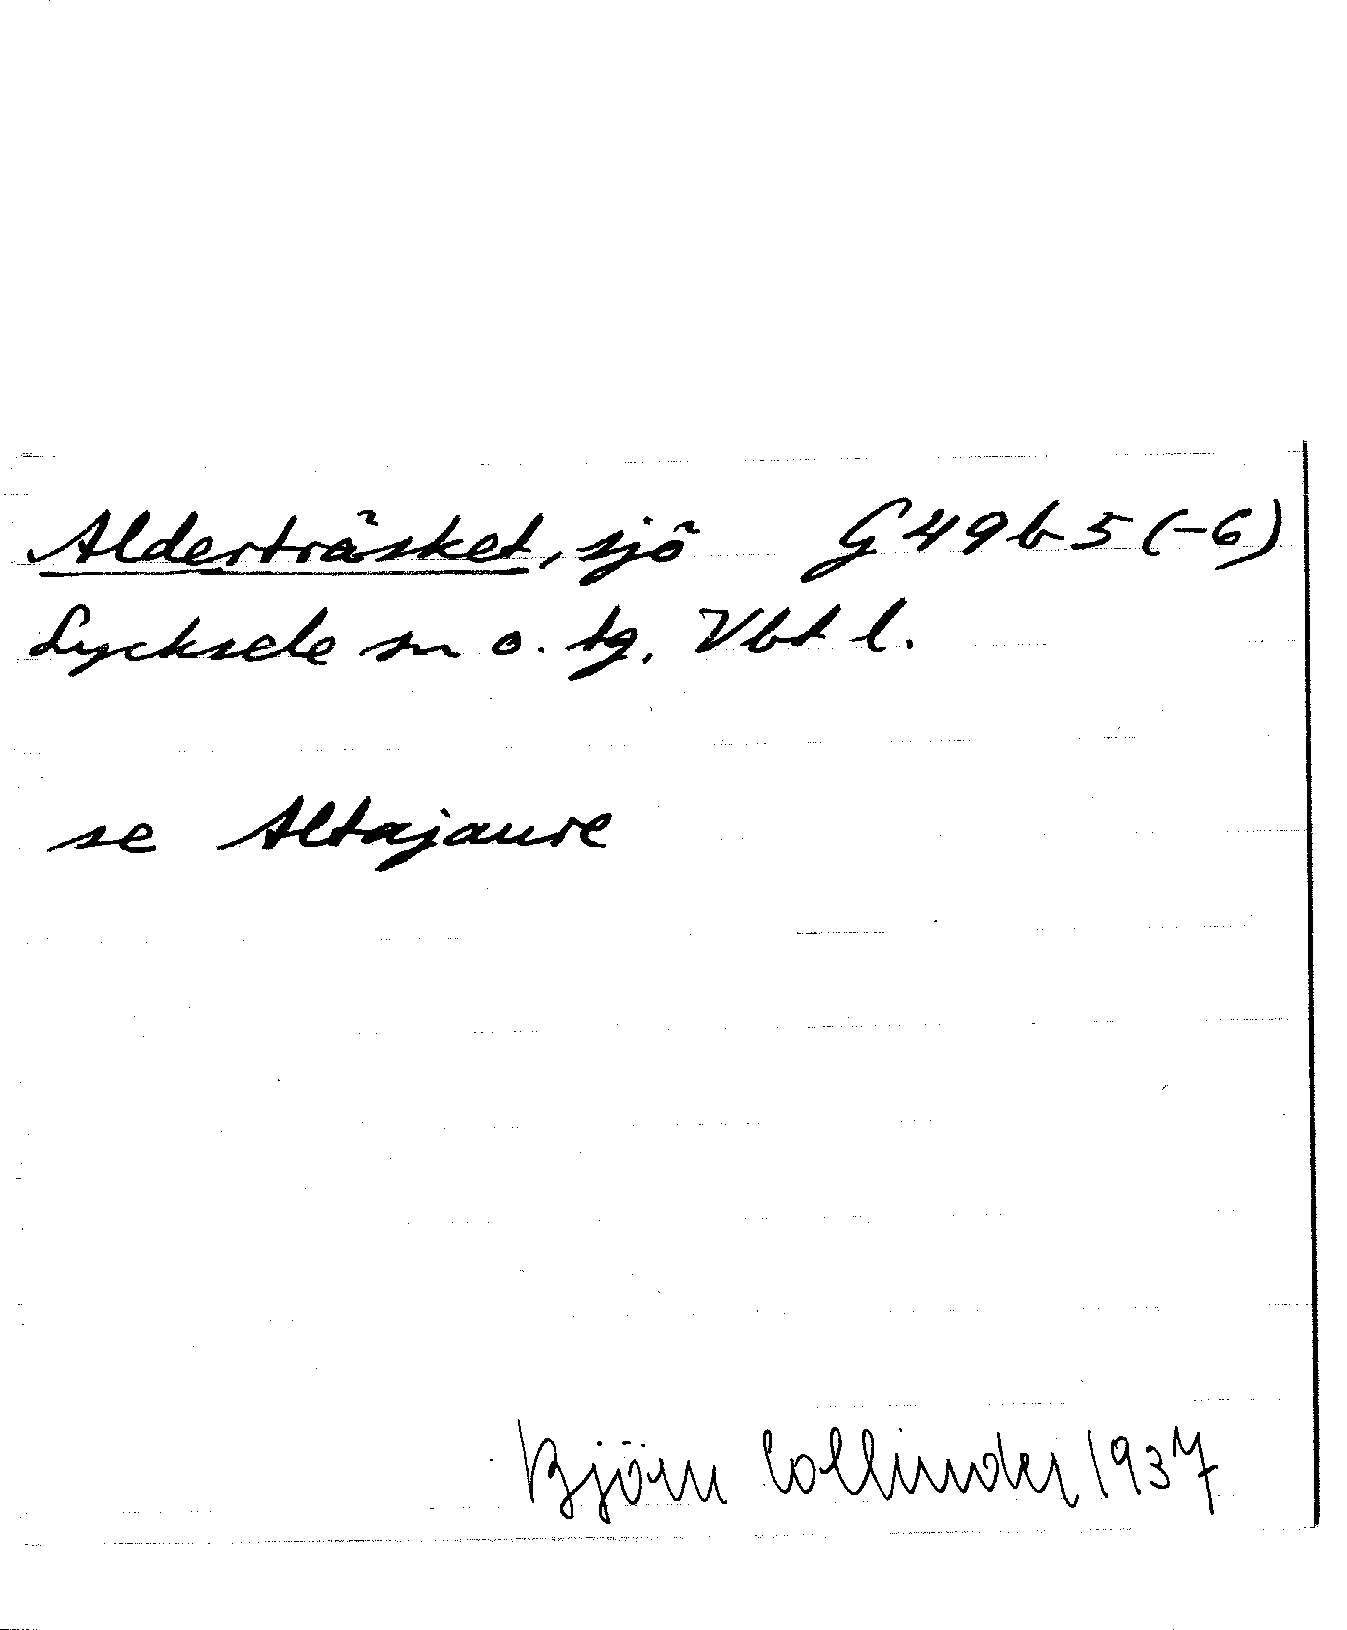 Alderträsket, sjö G 49 b 5 (-6)
Lycksele sn o. tg. Vbt l.
se Altajaure
Björn Collinder 1937